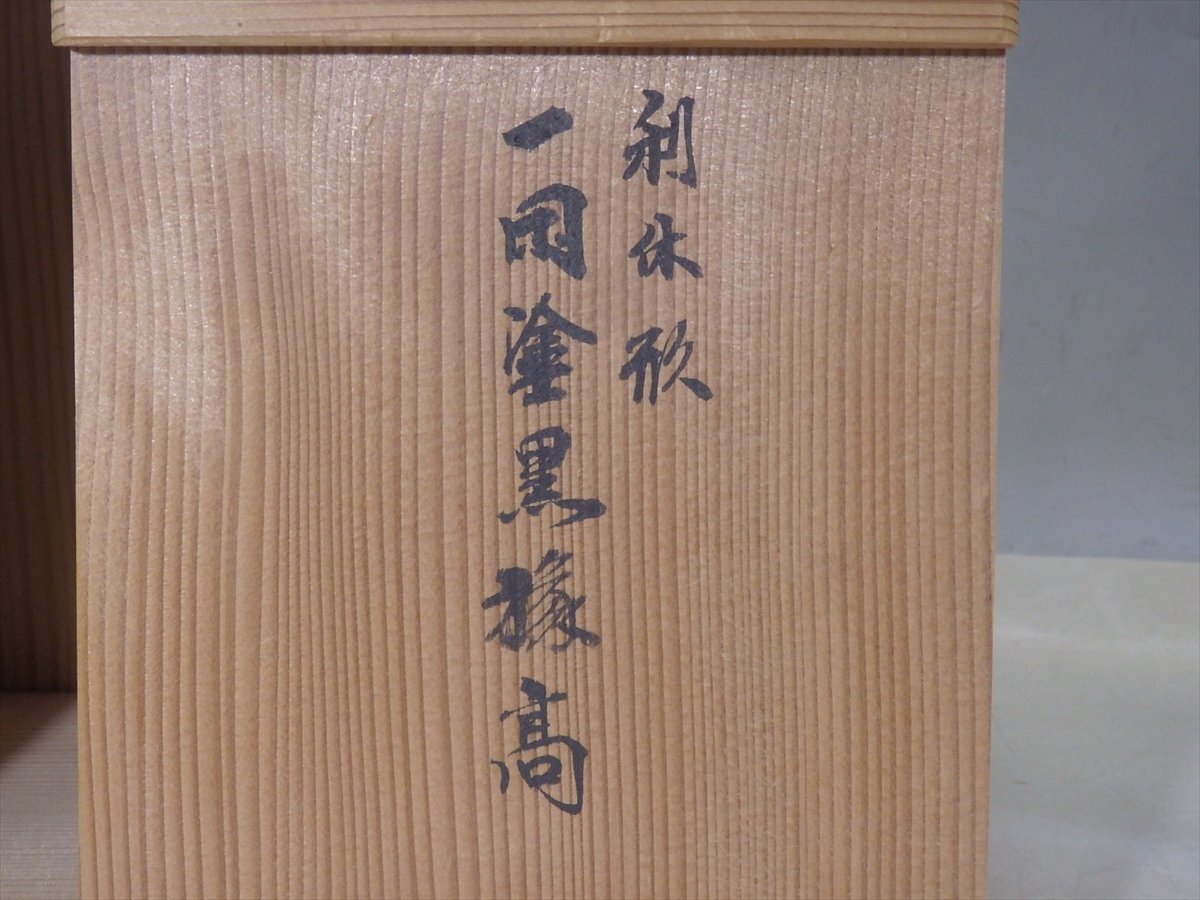 利休形
一閑塗黒縁高